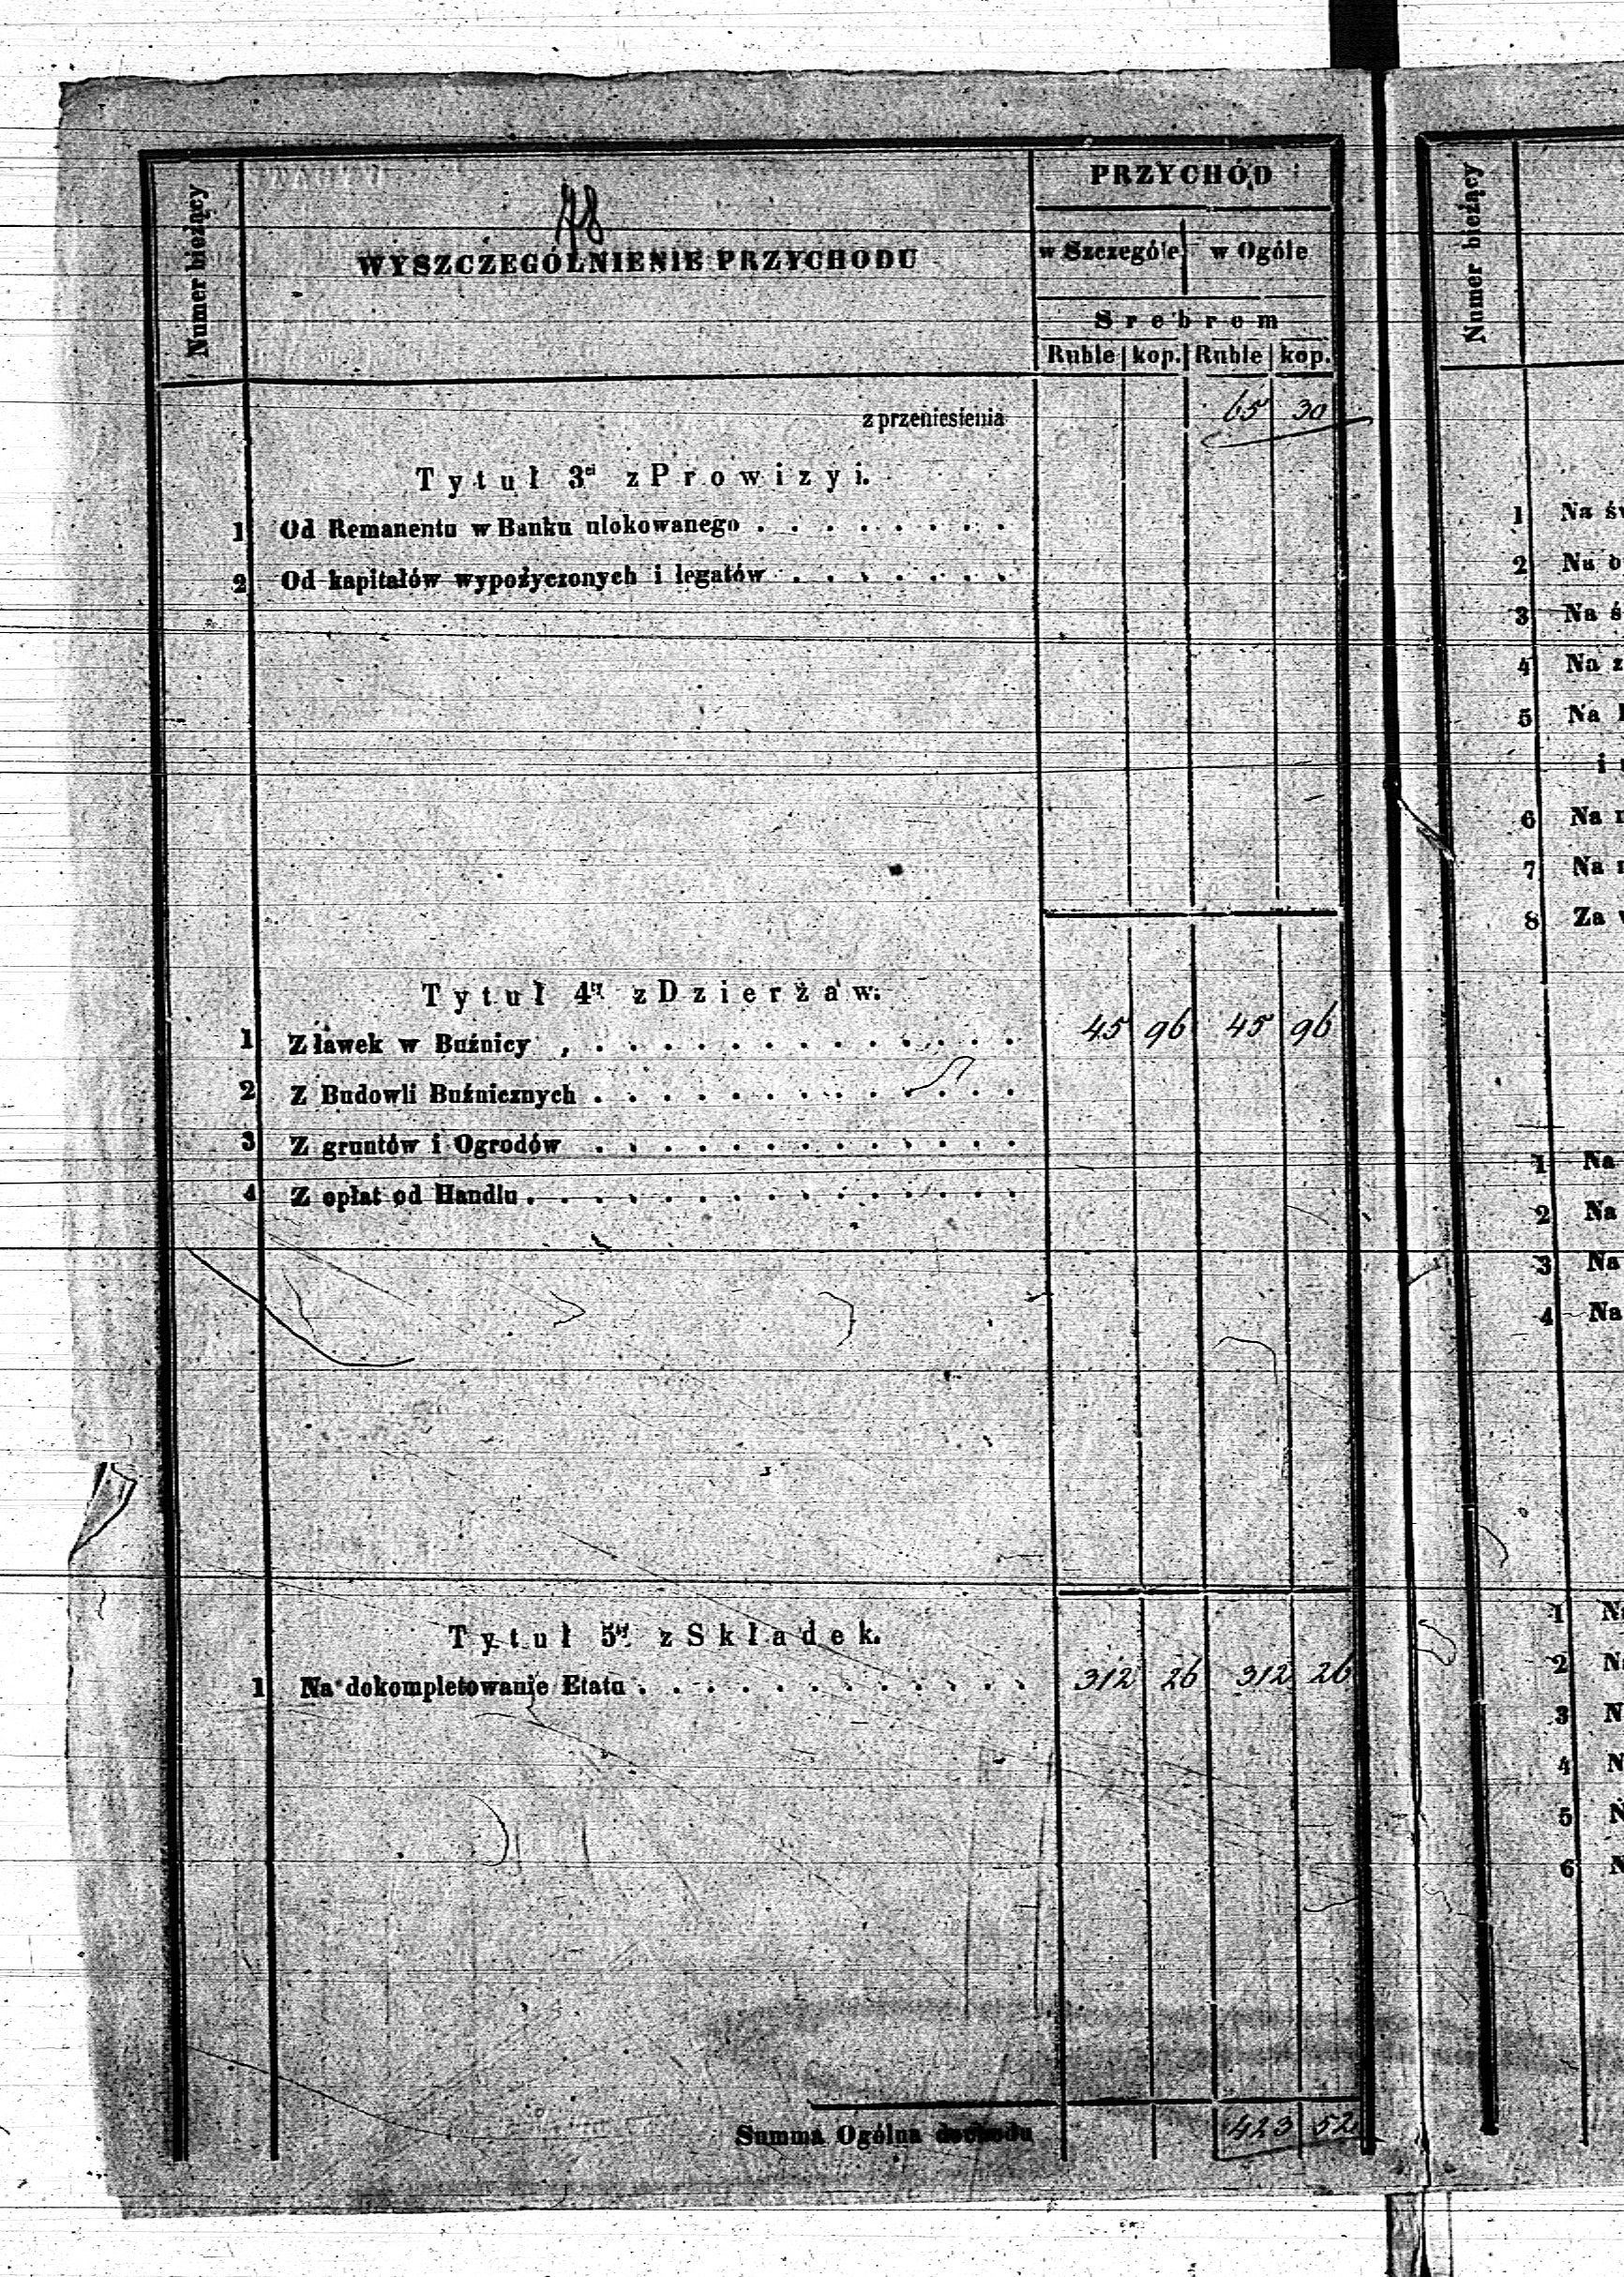 78
Numer bieżący
WYSZCZEGÓLNIENIE PRZYCHODU
PRZYCHÓD
w Szczególe w Ogóle
Srebrem
Ruble kop. Ruble kop.
z przeniesienia 65 30
Tytuł 3ci z Prowizyi.
1 Od Remanentu w Banku ulokowanego . . . . . . . .
2 Od kapitałów wypożyczonych i legatów . . . . . . .
Tytuł 4ty z Dzierżaw.
1 Z ławek w Buźnicy . . . . . . . . . . . . . 45 96 45 96
2 Z Budowli Buźnicznych . . . . . . . . . . . . .
3 Z gruntów i Ogrodów . . . . . . . . . . . . .
4 Z opłat od Handlu . . . . . . . . . . . . . . .
Tytuł 5ty z Składek.
1 Na dokompletowanie Etatu . . . . . . . . . . . . 312 26 312 26
Summa Ogólna dochodu 423 52
Numer bieżący
1 Na
2 Na
3 Na
4 Na
5 Na
i
6 Na
7 Na
8 Za
1 Na
2 Na
3 Na
4 Na
1 N
2 N
3 N
4 N
5 N
6 N